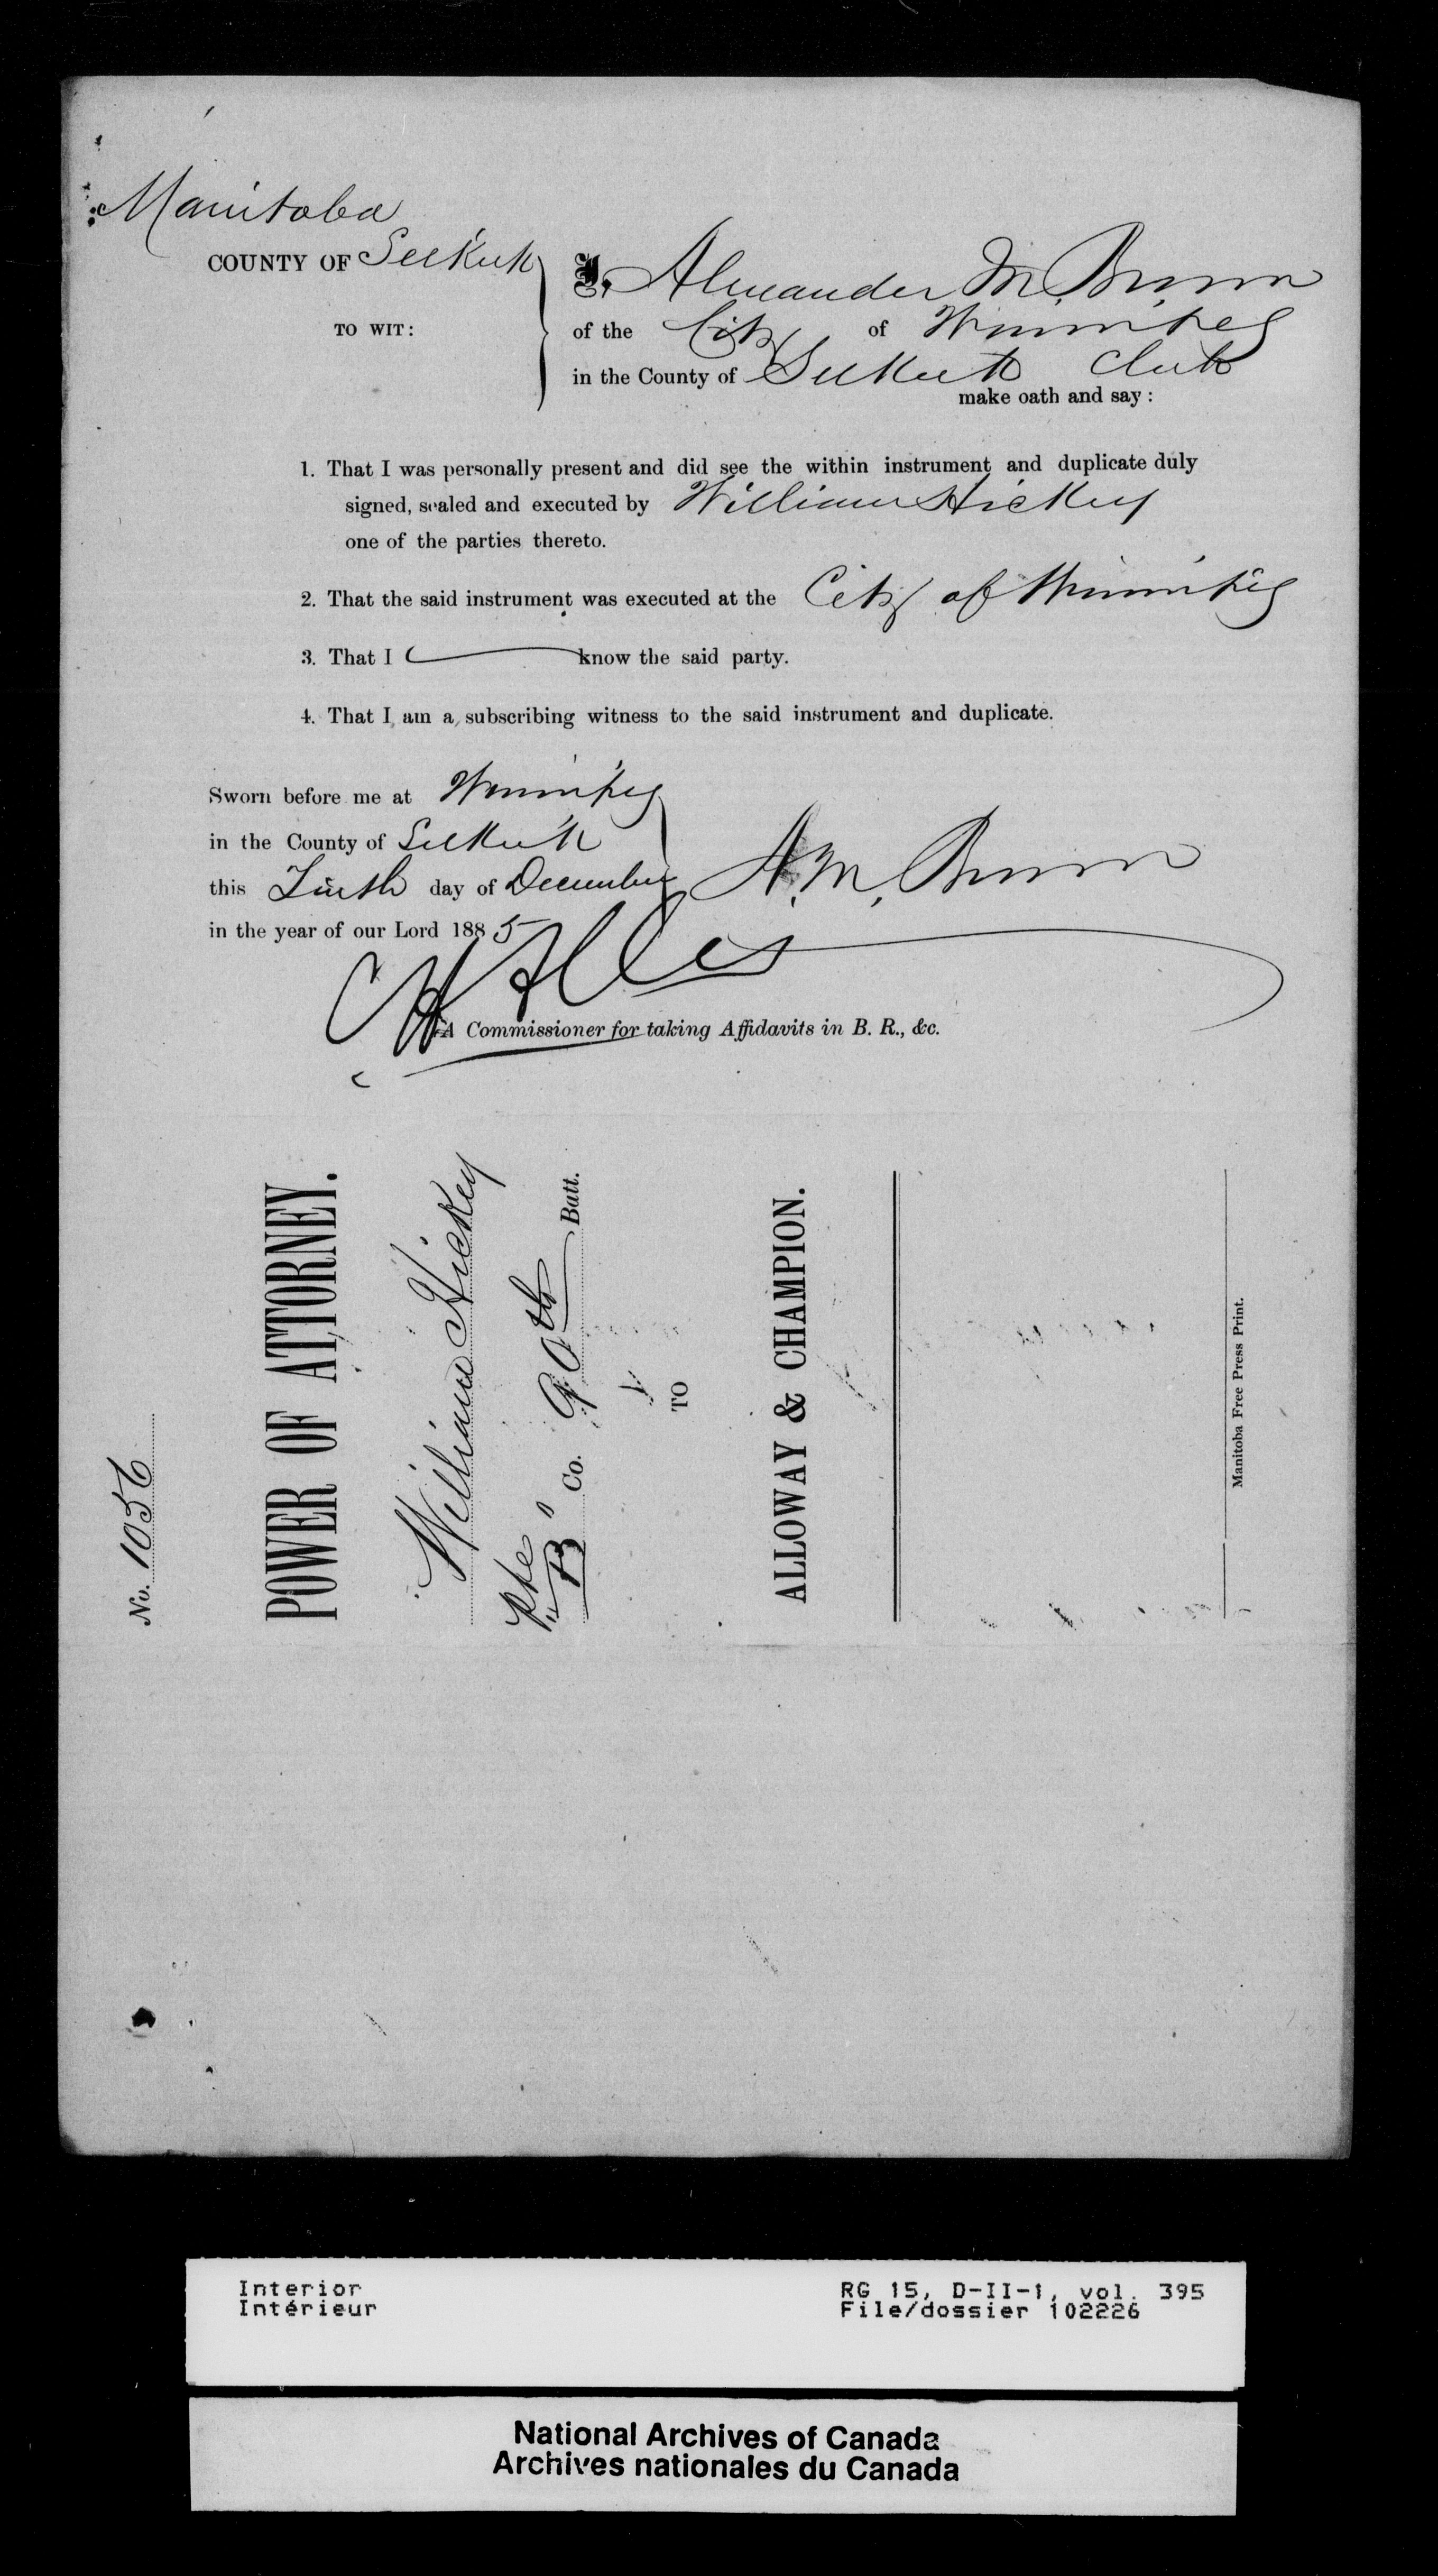 Manitoba
COUNTY OF Selkirk
TO WIT:
I, Alexander M. Brown
of the City of Winnipeg
in the County of Selkirk Clerk
make oath and say:
1. That I was personally present and did see the within instrument and duplicate duly
signed, sealed and executed by William Hickey
one of the parties thereto.
2. That the said instrument was executed at the City of Winnipeg
3. That I know the said party.
4. That I am a subscribing witness to the said instrument and duplicate.
Sworn before me at Winnipeg
in the County of Selkirk
this day of December
in the year of our Lord 1885
A. M. Brown
A Commissioner for taking Affidavits in B. R., &c.
No. 1056
POWER OF ATTORNEY.
William Hickey
Pte "B" Co. 90th Batt.
TO
ALLOWAY & CHAMPION.
Manitoba Free Press Print.
Interior
Intérieur
RG 15, D-II-1, vol. 395
File/dossier 102226
National Archives of Canada
Archives nationales du Canada